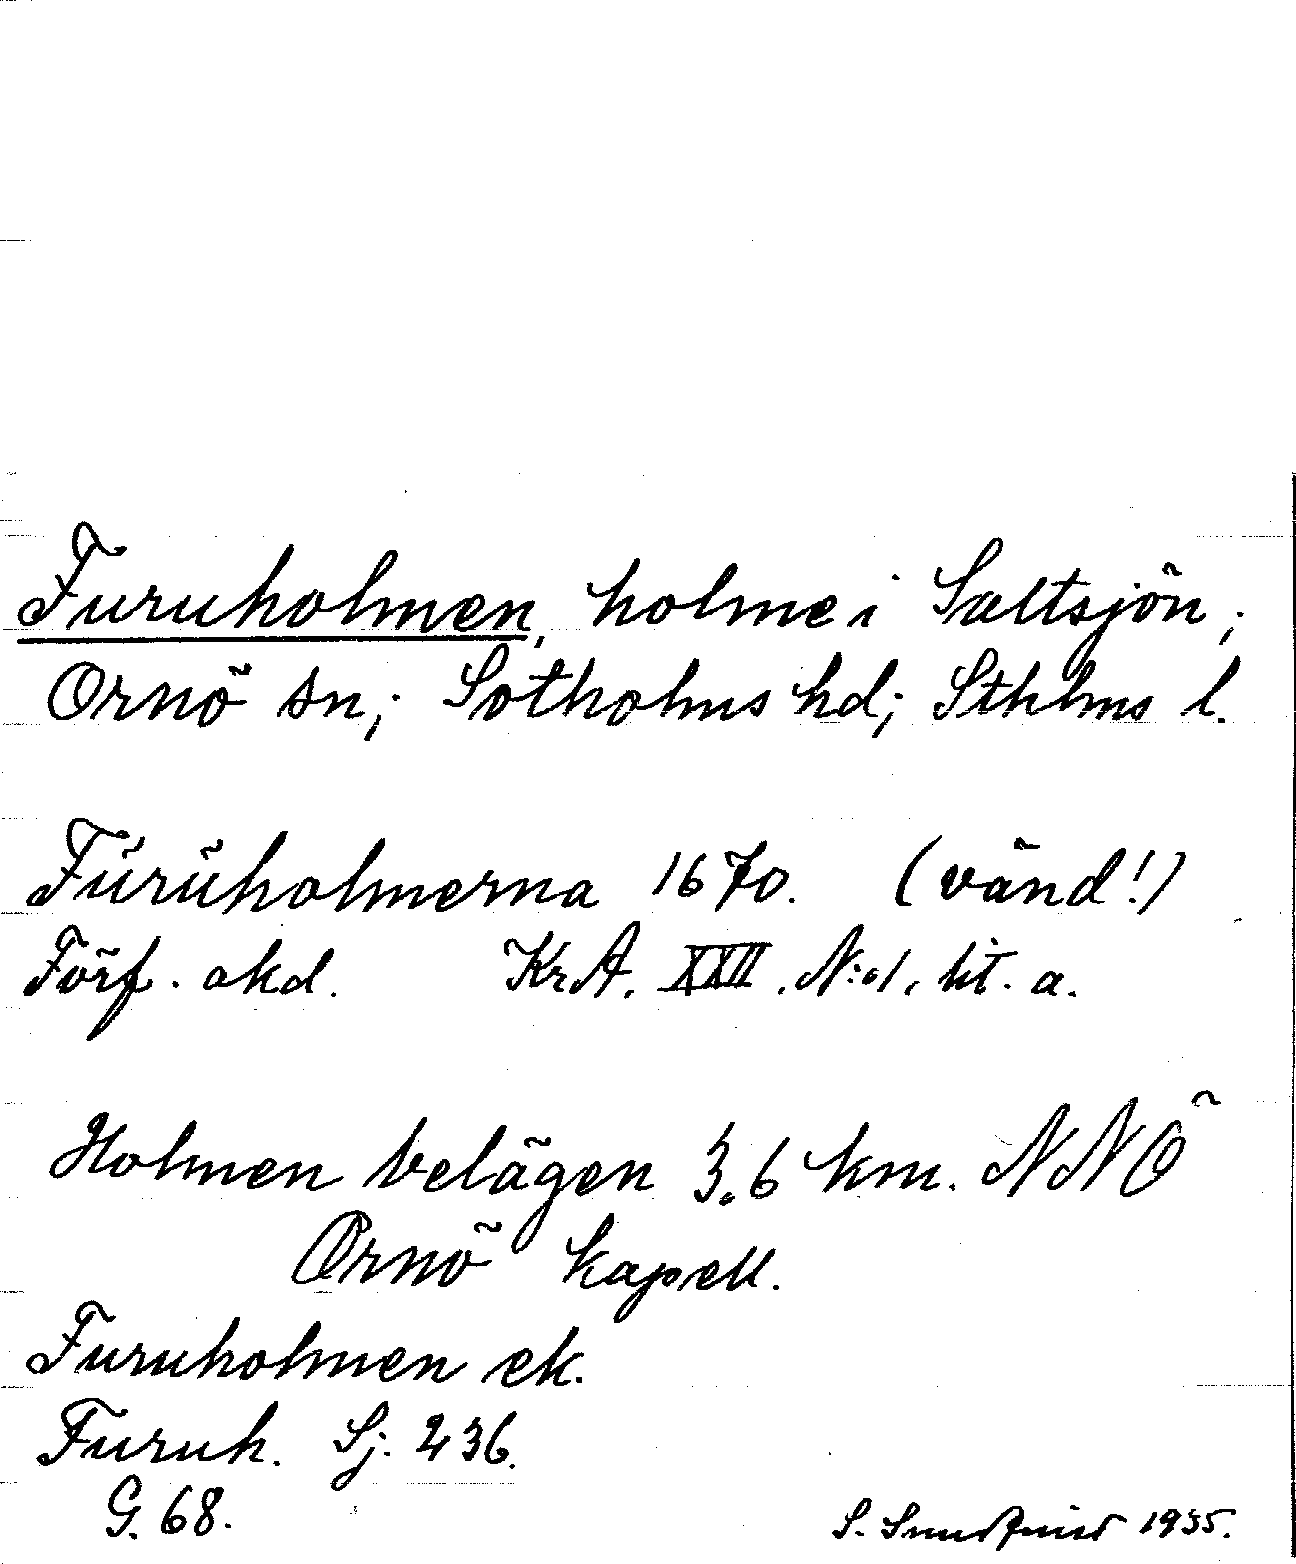 Furuholmen, holme i Saltsjön;
Ornö sn; Sotholms hd; Sthlms l.
Fŭrŭholmerna 1670. (vänd!)
Förf. akd. KrA. XXII. N:o1, lit. a.
Holmen belägen 3.6 km. NNÖ
Ornö kapell.
Furuholmen ek.
Furuh. Sj. 236.
G. 68.
S. Sundquist 1935.